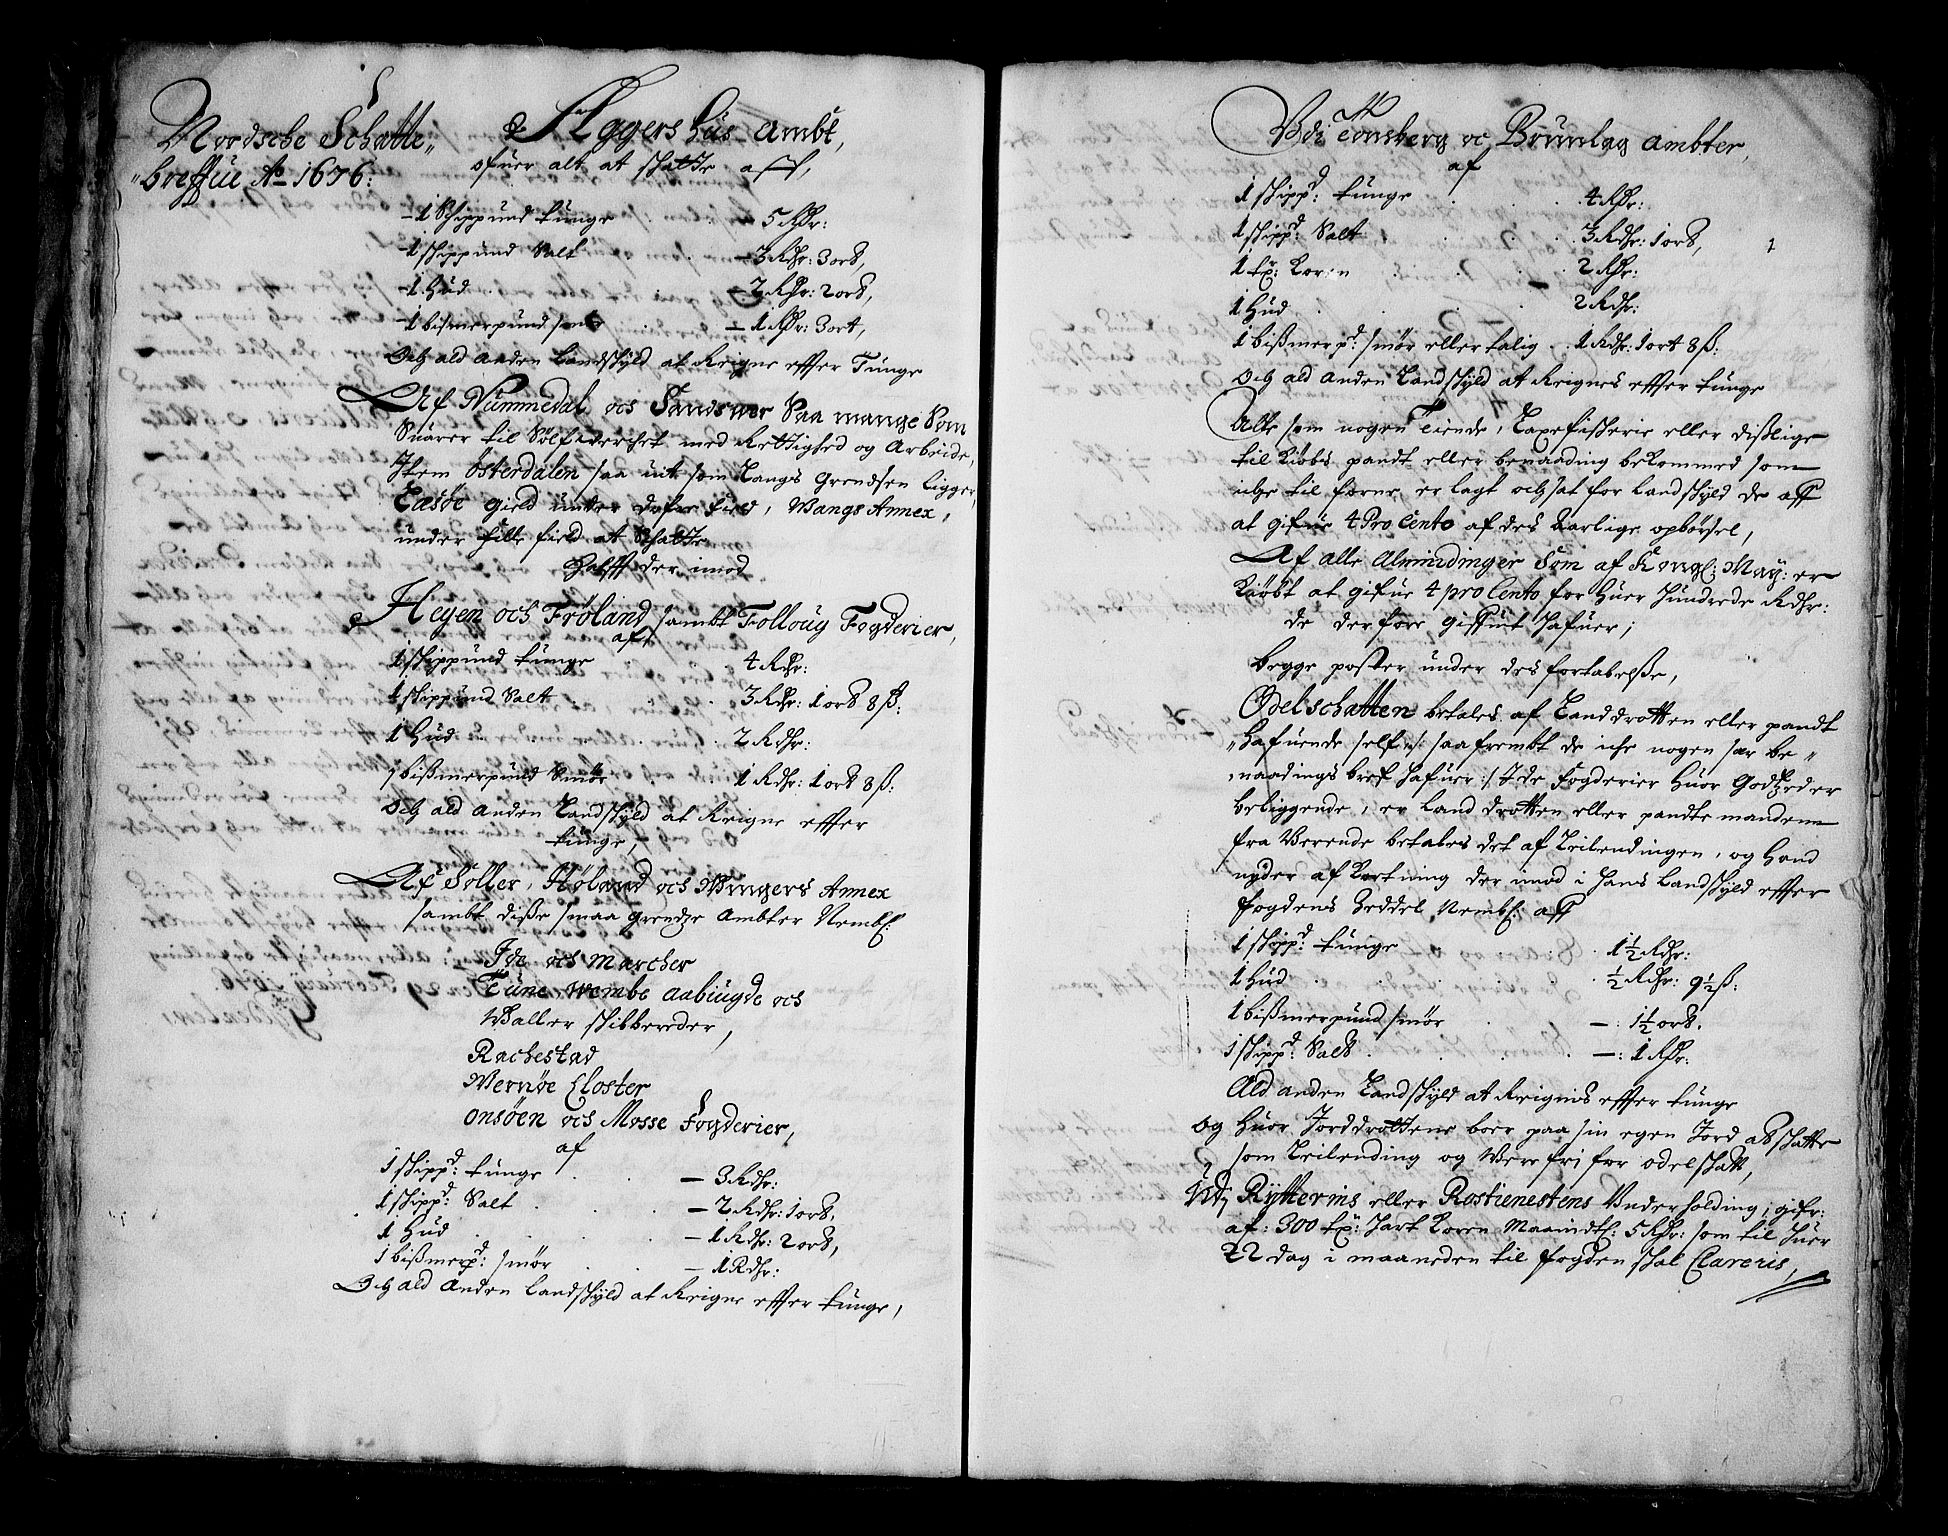 Nordsche Schatte
breffue Ao 1676:
Aggershus Ambt,
ofuer alt at schatte aff,
1 Schippund tunge 5 Rdr:
1 schippund Salt 3 Rdhr: 3 ort,
1 Hud 2 Rdr: 2 ort,
1 bismerpund smör 1 Rdr: 3 ort,
Och ald anden Landschyld at Reigne effter Tunge
Af Nummedal och Sandswer Saa mange Som
Suarer til Sölfwerchet med Rettighed og Arbeide,
Item Österdalen saa uit som Langs Grendsen Ligger,
Eassöe gield under Dofre field, Wangs Annex,
under fille field at Schatte
Halfft der imod
Heyen och Fröland sambt Follouy Fogderier,
af
1 schippund tunge 4 Rdr:
1 schippund Salt 3 Rdr: 1 ort 8 ß:
1 Hud 2 Rdhr:
1 bißmerpund Smör 1 Rdhr: 1 ort 8 ß:
Och ald anden Landschyld at Reigne effter
tunge,
Af Soller, Höland och Wingers Annex
sambt diße smaa grendze Ambter Nembl:
Ide och Marcher
Tune Wembe Aabiugde och
Waller schibbreder,
Rachestad
Wernöe Closter
Onsöen och Mosse Fogderier,
af
1 schippd: tunge 3 Rdhr:
1 schippd: Salt 2 Rdhr: 1 ort,
1 Hud 1 Rdhr: 2 ort,
1 bißmerpd: smör 1 Rdhr:
Och ald anden Landschyld at Reigne effter tunge,
Udi Tonsberg oc Brunlag Ambter,
af
1 schippd: tunge 4 Rdr:
1 schippd: Salt 3 Rdhr: 1 ort,
1 tr: Koren 2 Rdr:
1 Hud 2 Rdhr:
1 bißmerpd: smör eller talig 1 Rdhr: 1 ort 8 ß:
Och ald anden Landschyld at Reignes effter tunge
Alle som nogen Tiende, Laxefischerie eller dißlige
til Kiöbs, pandt eller benaading bekommed som
iche til forne er lagt och sat for Landschyld de aff
at gifue 4 Pro Cento af des Aarlige opbörsel,
Af alle Almindinger Som af Kongl: May: er
Kiöbt at gifue 4 pro Cento for Huer Hundrede Rdhr:
de derfore gifuit hafuer;
begge poster under des fortabelße,
Odelschatten betales af Landdrotten eller pandt
hafuende self /: saafrembt de iche nogen sær be
naadings bref hafuer :/ I de fogderier Huor Godtzed er
beliggende, er Landdrotten eller pandtemanden
fra Werende betales det af Leilendingen, og Hand
nyder af Kortning der imod i Hans Landschyld effter
fogdens Zeddel Nembl: aff
1 schippd: tunge 1½ Rdhr:
1 Hud ½ Rdhr: 9½ ß:
1 bißmerpund smör —: 1½ ort.
1 schippd: Salt —: 1 Rdr:
Ald anden Landschyld at Reignis effter tunge
Og Huor Jorddrottene boer paa sin egen Jord at schatte
som Leilending og Were fri for odelschatt,
Til Rytterins eller Rostienestens Underholding, gifr:
af: 300 tr: Hart Koren Maanedtl: 5 Rdr: som til Huer
22 dag i maaneden til fogden schal Clareris,